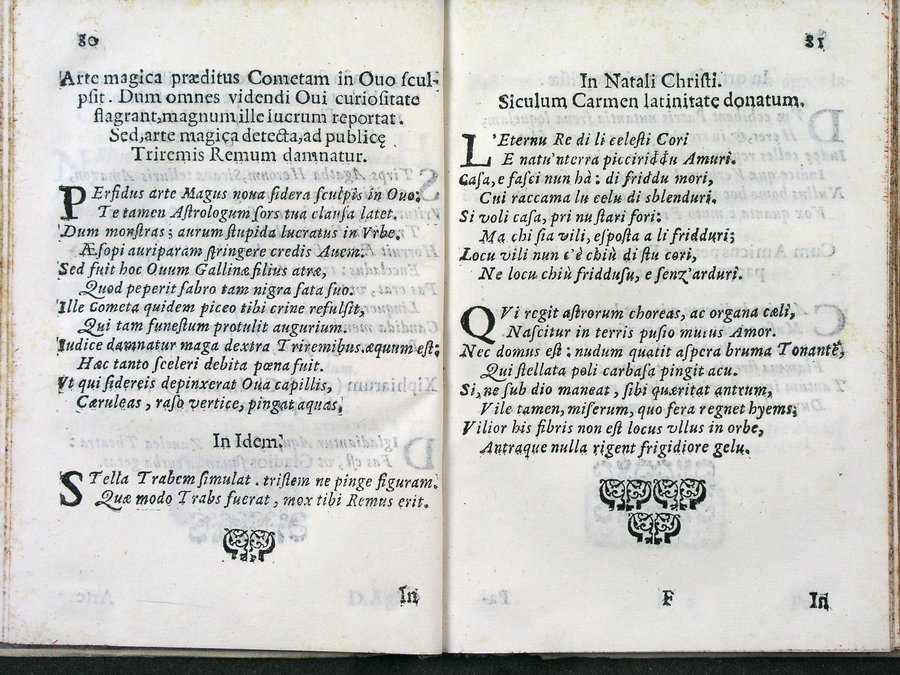 80
Arte magica præditus Cometam in Ovo scul-
psit. Dum omnes videndi Oui curiositate
flagrant, magnum ille lucrum reportat.
Sed, arte magica detecta, ad publicę
Triremis Remum damnatur.
PErfidus arte Magus noua sidera sculpis in Ouo:
Te tamen Astrologum sors tua clausa latet.
Dum monstras; aurum stupida lucratus in Vrbe.
Æsopi auriparam stringere credis Auem.
Sed fuit hoc Ouum Gallinæ filius atræ,
Quod peperit fabro tam nigra fata suo.
Ille Cometa quidem piceo tibi crine refulsit,
Qui tam funestum protulit augurium.
Iudice damnatur maga dextra Triremibus. æquum est;
Hac tanto sceleri debita pœna fuit.
Vt qui sidereis depinxerat Oua capillis,
Cæruleas, raso vertice, pingat aquas.
In Idem.
STella Trabem simulat. tristem ne pinge figuram.
Quæ modo Trabs fuerat, mox tibi Remus erit.
In
81
In Natali Christi.
Siculum Carmen latinitatę donatum.
L'Eternu Re di li celesti Cori
E natu'nterra picciriddu Amuri.
Casa, e fasci nun hà: di friddu mori,
Cui raccama lu celu di sblenduri.
Si voli casa, pri nu stari fori:
Ma chi sia vili, esposta a li fridduri;
Locu vili nun c'è chiù di stu cori,
Ne locu chiù friddusu, e senz'arduri.
QVi regit astrorum choreas, ac organa cæli,
Nascitur in terris pusio mutus Amor.
Nec domus est: nudum quatit aspera bruma Tonantē,
Qui stellata poli carbasa pingit acu.
Si, ne sub dio maneat, sibi quæritat antrum,
Vile tamen, miserum, quo fera regnet hyems;
Vilior his fibris non est locus vllus in orbe,
Antraque nulla rigent frigidiore gelu.
F
In